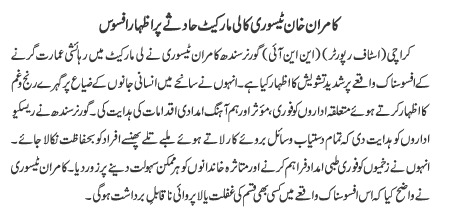 کامران خان ٹیسوری کا لی مارکیٹ حادثے پر اظہار افسوس
کراچی (اسٹاف رپورٹر) (این این آئی) گورنر سندھ کامران ٹیسوری نے لی مارکیٹ میں رہائشی عمارت گرنے
کے افسوسناک واقعے پر شدید تشویش کا اظہار کیا ہے۔ انہوں نے سانحے میں انسانی جانوں کے ضیاع پر گہرے رنج و غم
کا اظہار کرتے ہوئے متعلقہ اداروں کو فوری، مؤثر اور ہم آہنگ امدادی اقدامات کی ہدایت کی۔ گورنر سندھ نے ریسکیو
اداروں کو ہدایت دی کہ تمام دستیاب وسائل بروئے کار لاتے ہوئے ملبے تلے پھنسے افراد کو بحفاظت نکالا جائے۔
انہوں نے زخمیوں کو فوری طبی امداد فراہم کرنے اور متاثرہ خاندانوں کو ہر ممکن سہولت دینے پر زور دیا۔ کامران ٹیسوری
نے واضح کیا کہ اس افسوسناک واقعے میں کسی بھی قسم کی غفلت یا لاپروائی ناقابل برداشت ہوگی۔